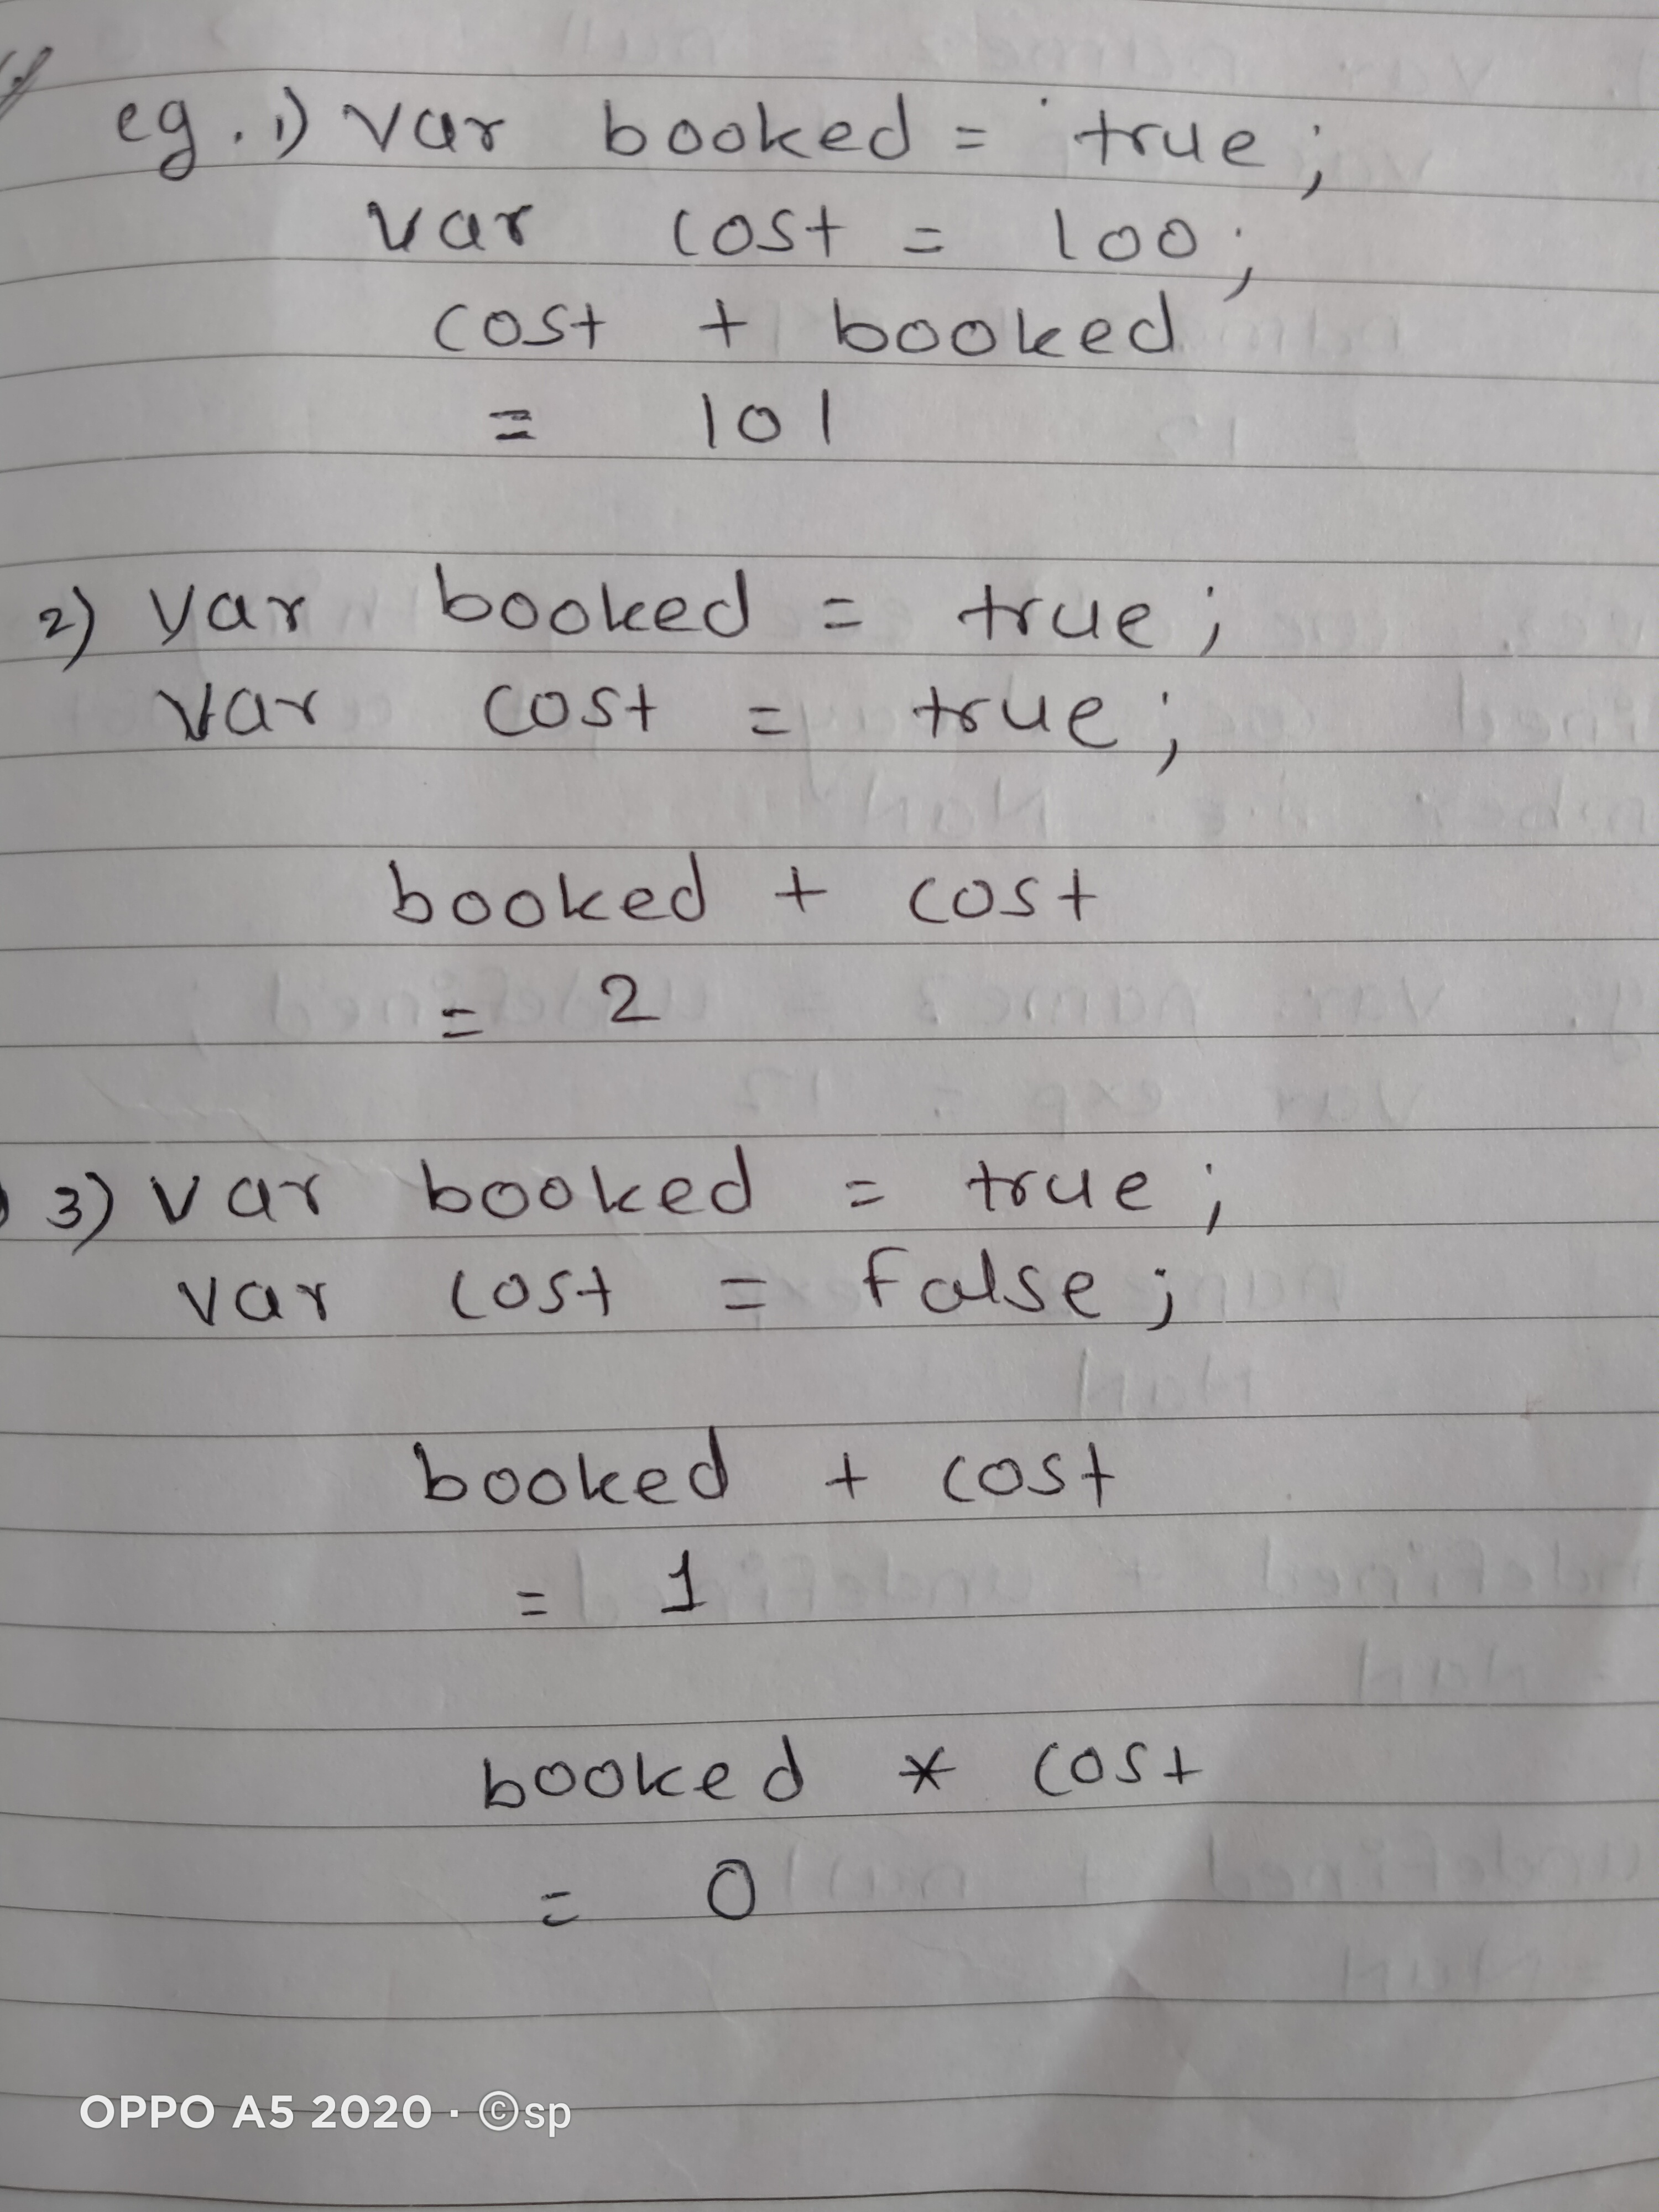 eg. 1) var booked = true;
var cost = 100;
cost + booked
= 101
2) var booked = true;
var cost = true;
booked + cost
= 2
3) var booked = true;
var cost = false;
booked + cost
= 1
booked * cost
= 0
OPPO A5 2020 · ©sp